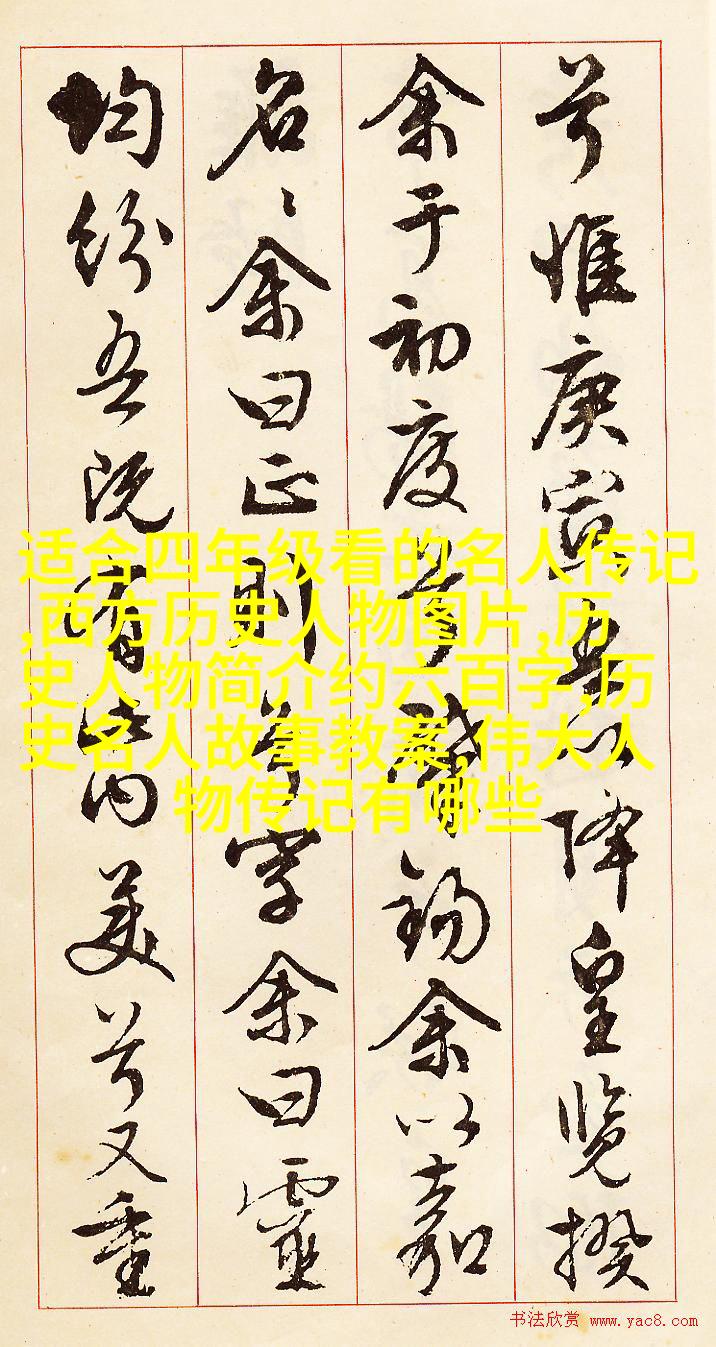 兮惟庚寅吾以降皇覽揆
余于初度兮肇錫余以嘉
名〻余曰正則兮字余曰靈
均紛吾既有此内美兮又重
适合四年级看的名人传记
,西方历史人物图片,历
史人物简介约六百字,历
史名人故事教案,伟大人
物传记有哪些
书法欣赏 www.yac8.com